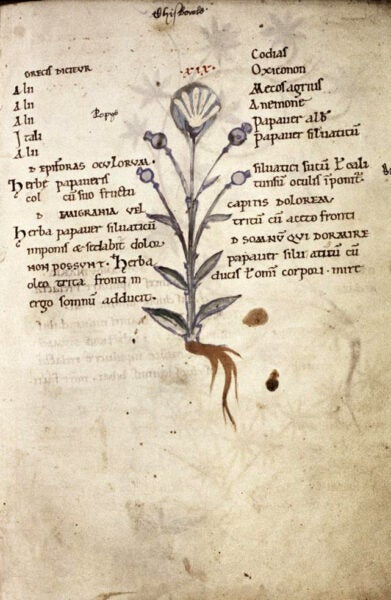 GRECIS DICITUR .XIX. Codias
Alii Oxiconon
Alii Mecosagrius
Alii Anemone
Itali Papauer alb
Alii Papauer siluaticũ
D EPIFORAS OCULORUM.
Herbe papaueris siluatici sucũ ł cali
col cũ suo fructu tunsũ oculis ĩponit.
D EMIGRANIA VEL CAPITIS DOLOREM
Herba papauer siluaticũ tritũ cũ aceto fronti
imponis & sedabit dolor D SOMNŨ QUI DORMIRE
NON POSSUNT. Herba papauer silu cũ
oleo trita fronti in ducis ł corpori. mirt
ergo somnũ adducit.